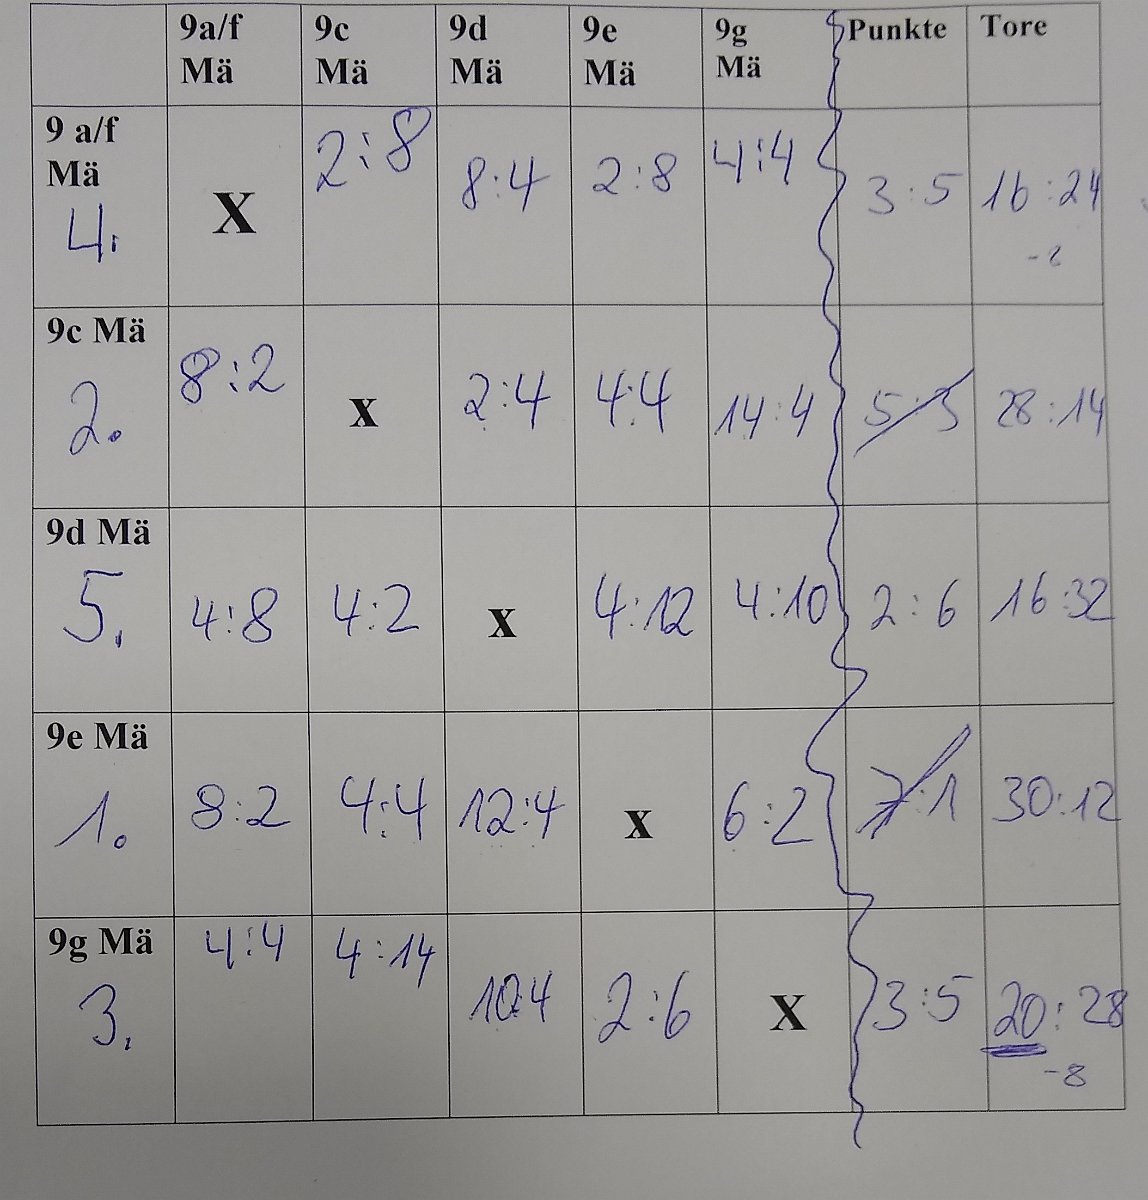 9a/f Mä 9c Mä 9d Mä 9e Mä 9g Mä Punkte Tore
9 a/f Mä 4. X 2:8 8:4 2:8 4:4 3:5 16:24
9c Mä 2. x 8:2 2:4 4:4 14:4 5:3 28:14
9d Mä 5. 4:8 4:2 x 4:12 4:10 2:6 16:32
9e Mä 1. 8:2 4:4 12:4 x 6:2 7:1 30:12
9g Mä 3. 4:4 4:14 10:4 2:6 X 3:5 20:28
-8